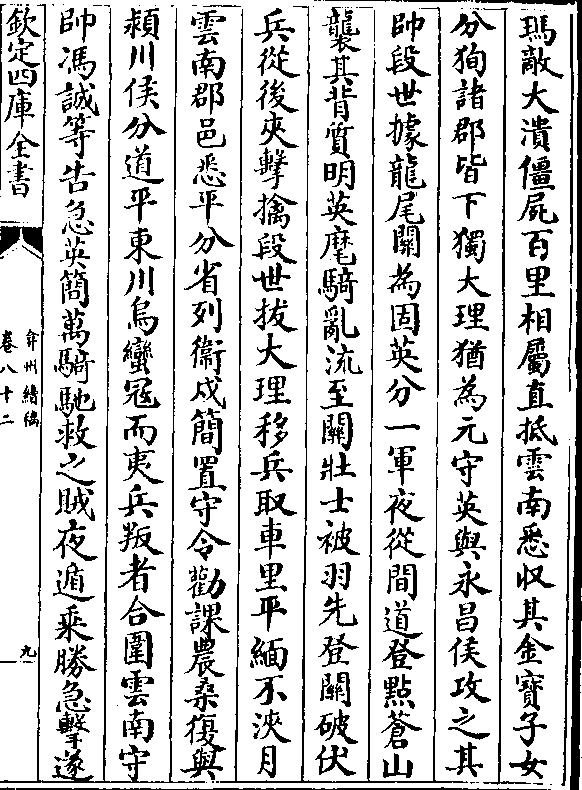 瑪敵大潰僵屍百里相屬直抵雲南悉収其金寶子女
分狥諸郡皆下獨大理猶為元守英與永昌侯攻之其
帥段世據龍尾關為固英分一軍夜從間道登點蒼山
襲其背質明英麾騎亂流至關壯士被羽先登關破伏
兵從後夾擊擒段世拔大理移兵取車里平緬不浹月
雲南郡邑悉平分省列衞戍簡置守令勸課農桑復與
頴川侯分道平東川烏蠻冦而夷兵叛者合圍雲南守
帥馮誠等告急英簡萬騎馳救之賊夜遁乘勝急擊遂
欽定四庫全書
弇州續稿
卷八十二
九